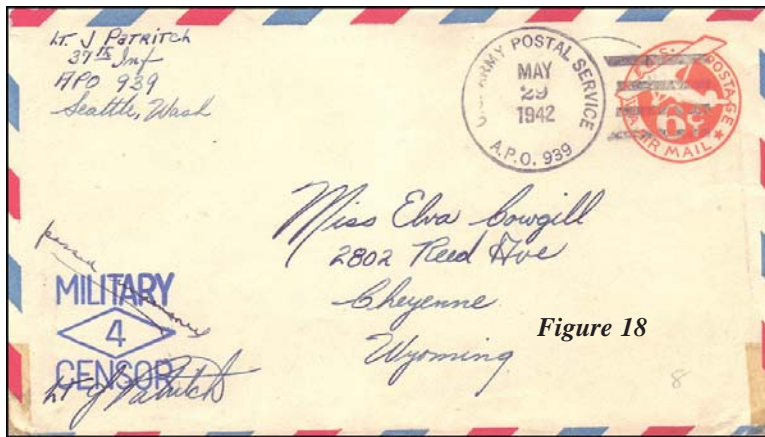 Lt. J Patritch
37th Inf
APO 939
Seattle, Wash
U.S. ARMY POSTAL SERVICE
MAY
29
1942
A.P.O. 939
U.S. POSTAGE
6¢
AIR MAIL
Miss Elva Cowgill
2802 Reed Ave
Cheyenne
Wyoming
passed
MILITARY
4
CENSOR
Lt J Patritch
Figure 18
8